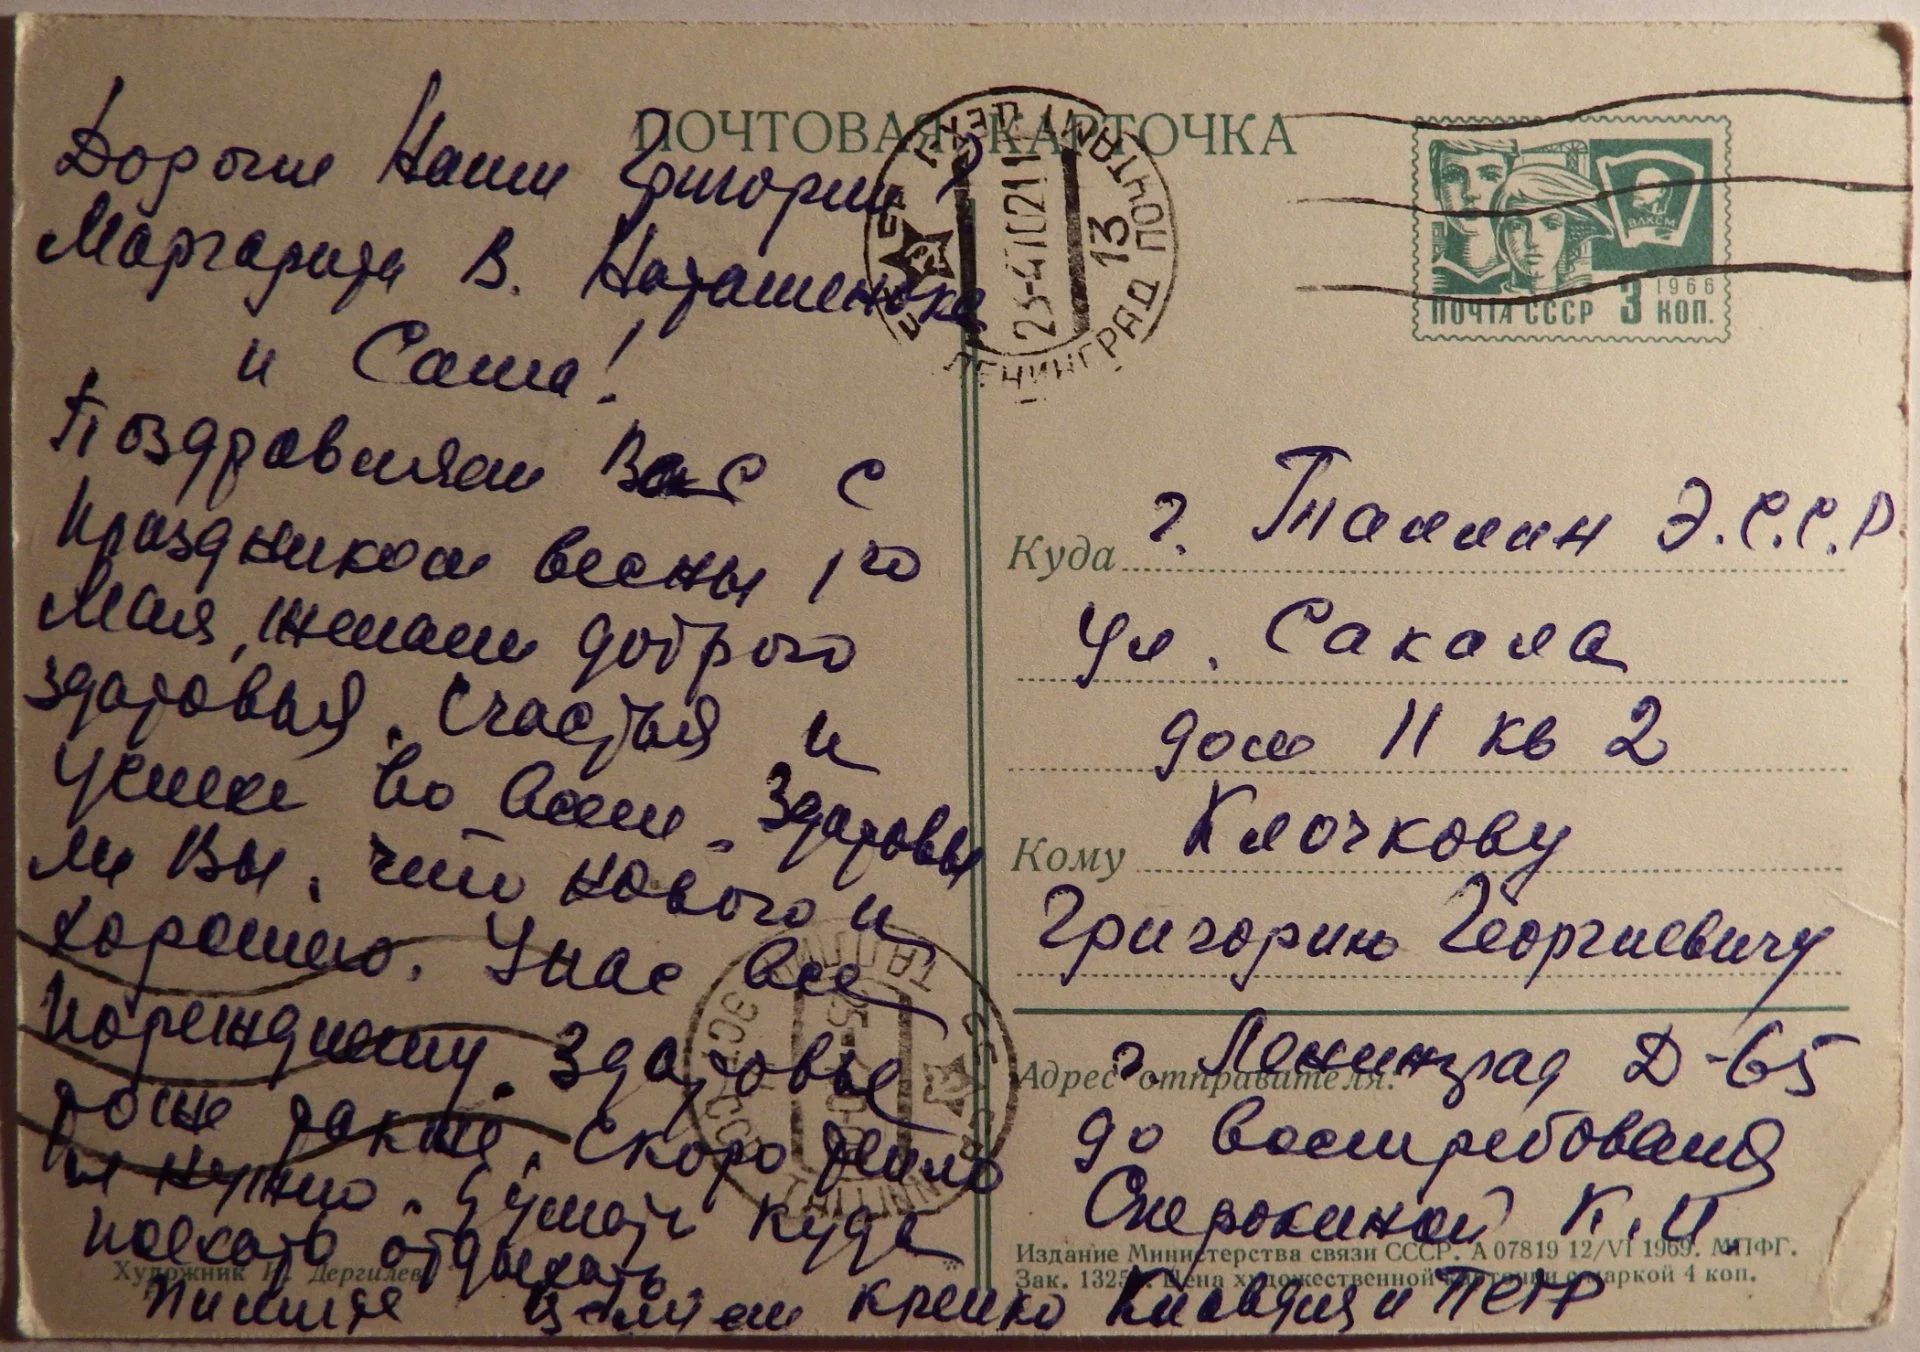 ПОЧТОВАЯ КАРТОЧКА
Дорогие Наши Григорий Г
Маргарита В. Наташенька
и Саша!
Поздравляем Вас с
праздником весны 1го
Мая, желаем доброго
здоровья, счастья и
успеха во всем. Здоровы
ли Вы, что нового и
хорошего. У нас все
по-прежнему. Здоровье
тоже также. Скоро тепло
и нужно думать куда
поехать отдыхать.
Пишите Целуем крепко Клавдия и Петр
ЛЕНИНГРАД ПОЧТАМТ
13
23-4 7021
ПОЧТА СССР 3 КОП.
1966
ВЛКСМ
Куда г. Таллин Э.С.С.Р
ул. Сакала
дом 11 кв 2
Кому Клочкову
Григорию Георгиевичу
Адрес отправителя:
г. Ленинград Д-65
до востребования
К.И.
Издание Министерства связи СССР. А 07819 12/VI 1969. МПФГ.
Зак. Цена художественной карточки с маркой 4 коп.
Художник Дергилев
ТАЛЛИН
ЭСТ.ССР